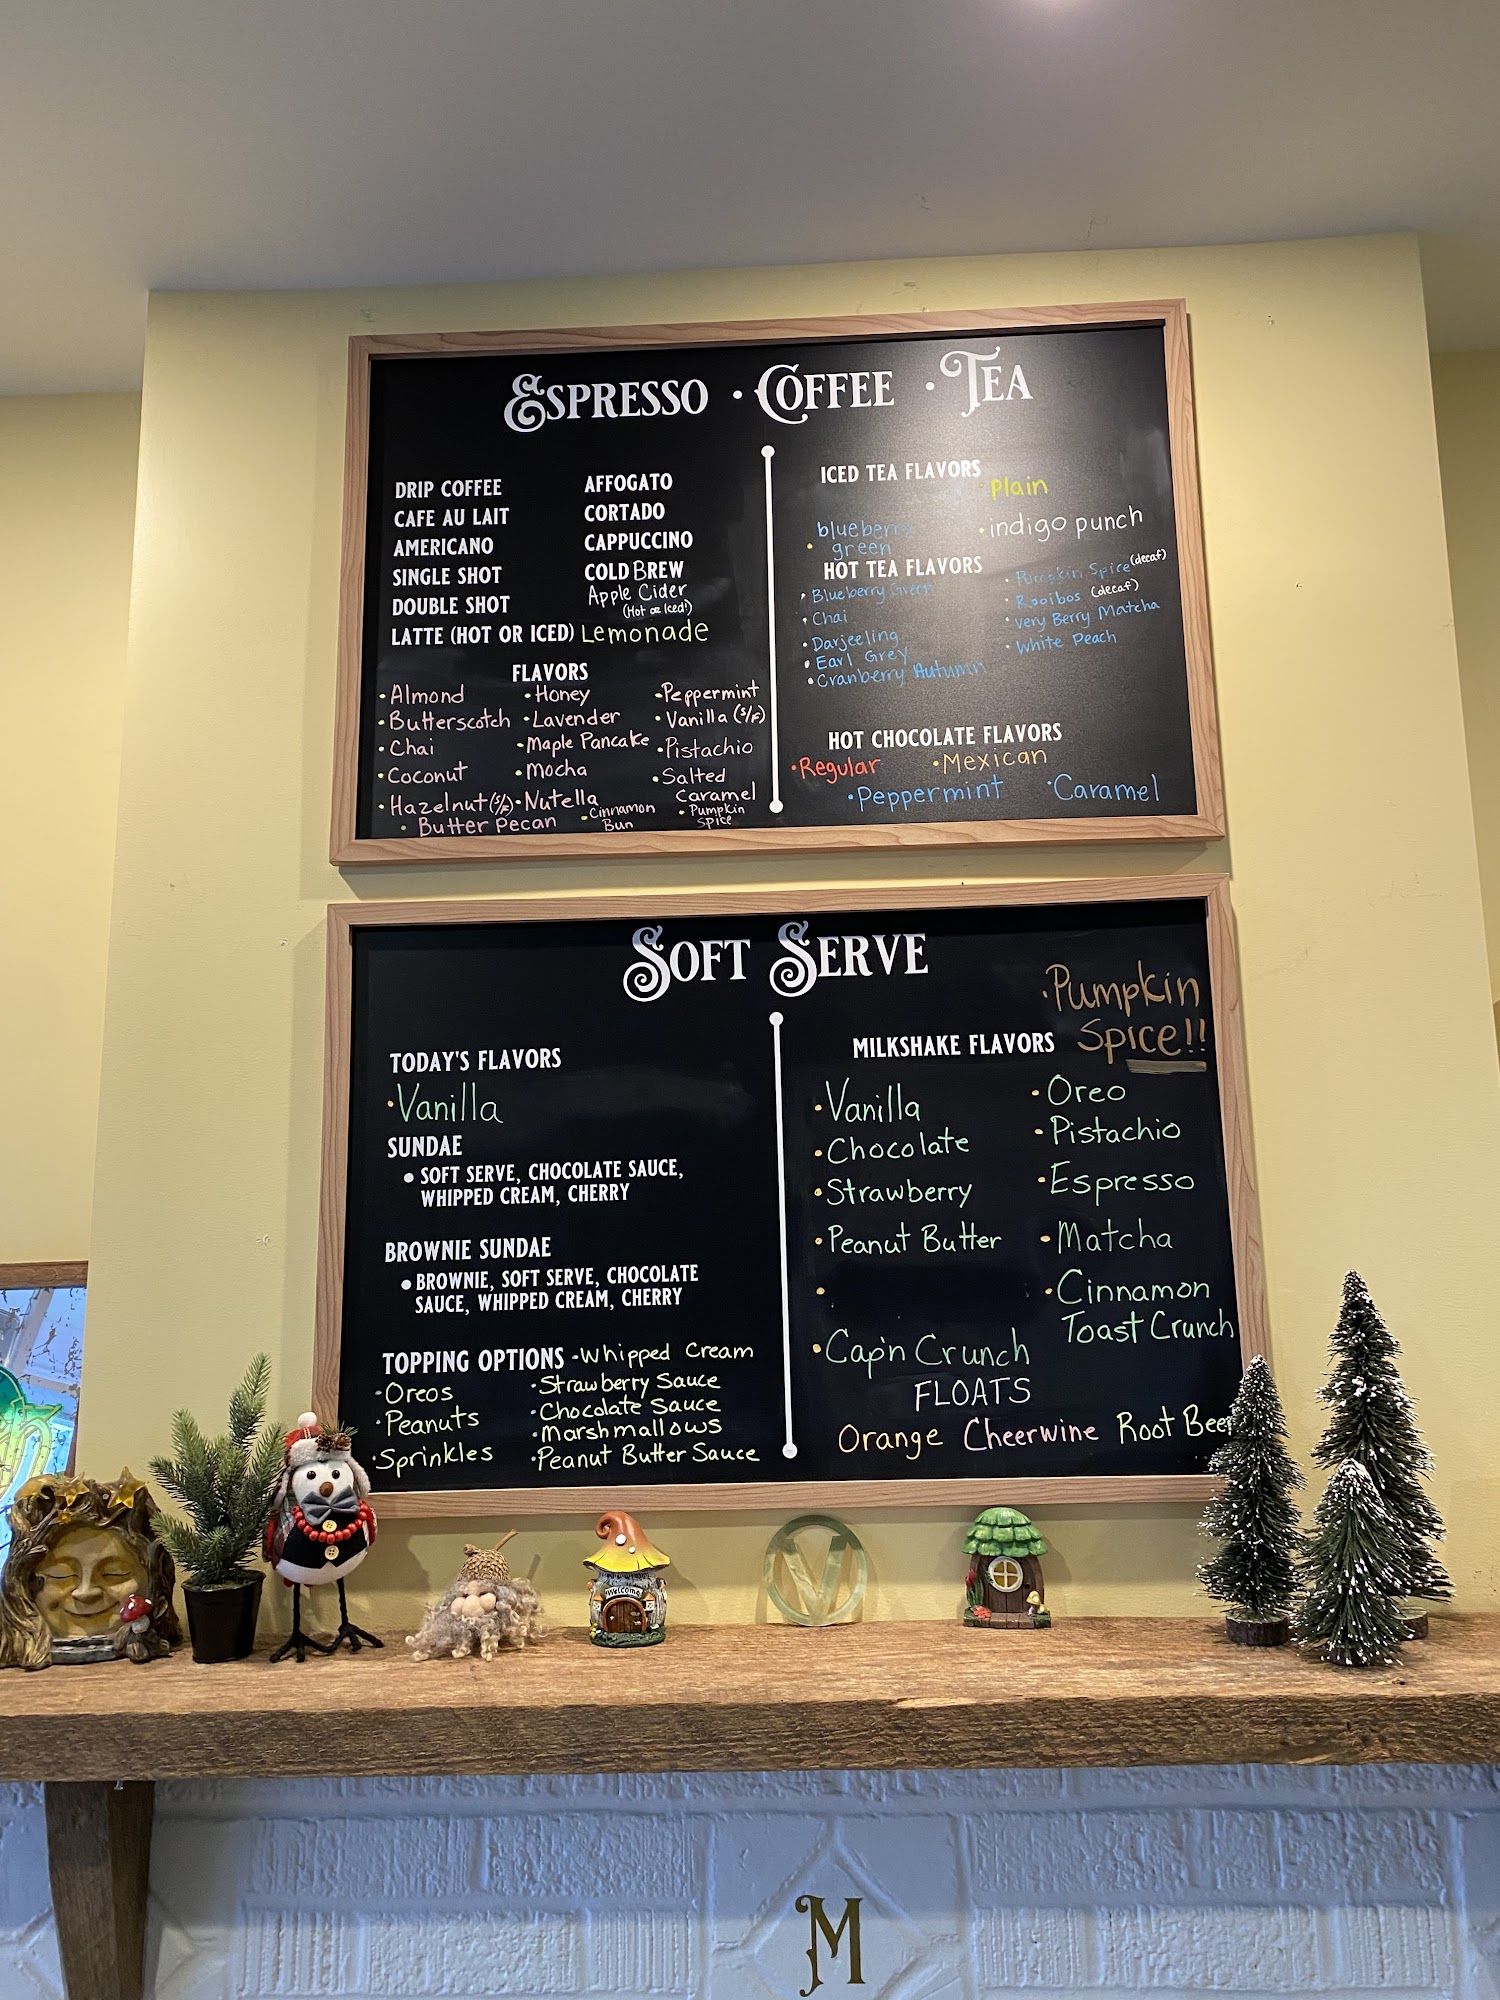 ESPRESSO · COFFEE · TEA
DRIP COFFEE
CAFE AU LAIT
AMERICANO
SINGLE SHOT
DOUBLE SHOT
LATTE (HOT OR ICED)
AFFOGATO
CORTADO
CAPPUCCINO
COLD BREW
Apple Cider
(Hot or Iced!)
Lemonade
FLAVORS
• Almond
• Butterscotch
• Chai
• Coconut
• Hazelnut (S/F)
• Butter Pecan
• Honey
• Lavender
• Maple Pancake
• Mocha
• Nutella
• Cinnamon
Bun
• Peppermint
• Vanilla (S/F)
• Pistachio
• Salted
Caramel
• Pumpkin
Spice
ICED TEA FLAVORS
• Plain
blueberry
• green
• indigo punch
HOT TEA FLAVORS
• Blueberry Green
• Chai
• Darjeeling
• Earl Grey
• Cranberry Autumn
• Pumpkin Spice (decaf)
• Rooibos (decaf)
• Very Berry Matcha
• White Peach
HOT CHOCOLATE FLAVORS
• Regular
• Mexican
• Peppermint
• Caramel
SOFT SERVE
TODAY'S FLAVORS
• Vanilla
SUNDAE
• SOFT SERVE, CHOCOLATE SAUCE,
WHIPPED CREAM, CHERRY
BROWNIE SUNDAE
• BROWNIE, SOFT SERVE, CHOCOLATE
SAUCE, WHIPPED CREAM, CHERRY
TOPPING OPTIONS
• Oreos
• Peanuts
• Sprinkles
• Whipped Cream
• Strawberry Sauce
• Chocolate Sauce
• Marshmallows
• Peanut Butter Sauce
MILKSHAKE FLAVORS
• Pumpkin
Spice!!
• Vanilla
• Chocolate
• Strawberry
• Peanut Butter
•
• Cap'n Crunch
• Oreo
• Pistachio
• Espresso
• Matcha
• Cinnamon
Toast Crunch
FLOATS
Orange Cheerwine Root Beer
Welcome
V
M